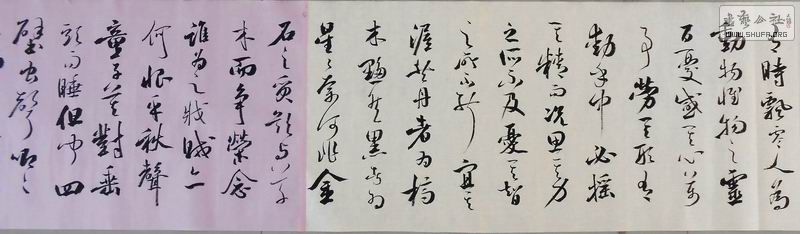 書藝公社
WWW.SHUFA.ORG
有時飄零人為
動物惟物之靈
百憂感其心萬
事勞其形有
動於中必摇
其精而况思其力
之所不及憂其智
之所不能宜其
渥然丹者为槁
木黟然黑者为
星々奈何非金
石之質欲与草
木而争榮念
誰为之戕賊亦
何恨乎秋聲
童子莫對垂
頭而睡但闻四
壁虫聲唧々